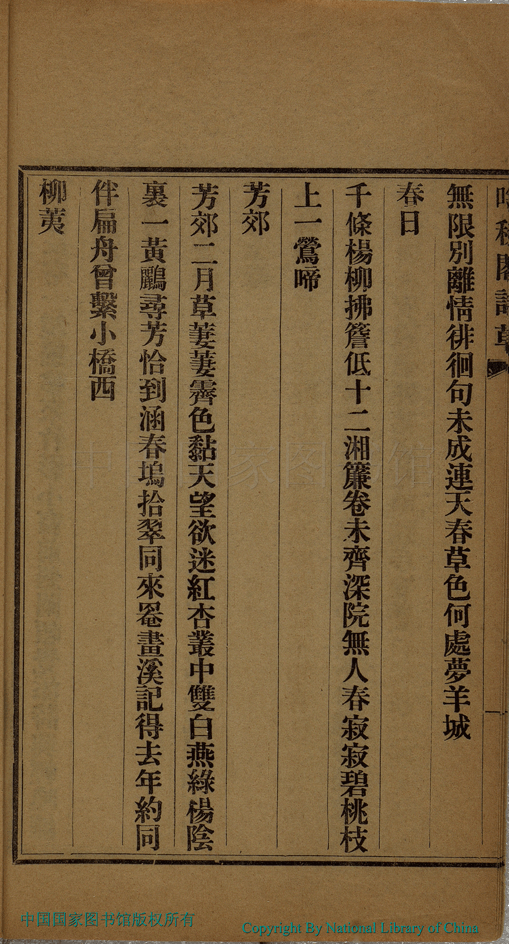 無限別離情徘徊句未成連天春草色何處夢羊城
春日
千條楊柳拂簷低十二湘簾卷未齊深院無人春寂寂碧桃枝
上一鶯啼
芳郊
芳郊二月草萋萋霽色黏天望欲迷紅杏叢中雙白燕綠楊陰
裏一黃鸝尋芳恰到涵春塢拾翠同來罨畫溪記得去年約同
伴扁舟曾繫小橋西
柳荑
中国国家图书馆版权所有
Copyright By National Library of China